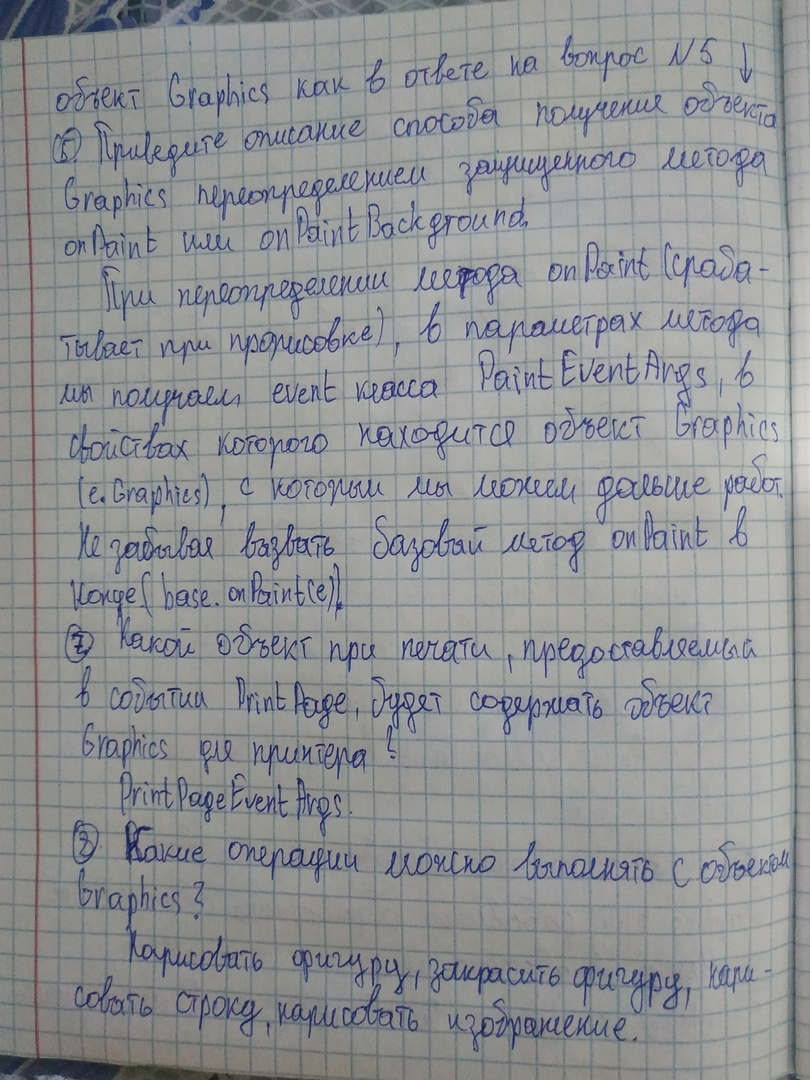 объект Graphics как в ответе на вопрос №5 ↓
⑤ Приведите описание способа получение объекта
Graphics переопределением защищенного метода
onPaint или onPaintBackground.
При переопределении метода onPaint (сраба-
тывает при прорисовке), в параметрах метода
мы получаем event класса PaintEventArgs, в
свойствах которого находится объект Graphics
(e.Graphics), с которым мы можем дальше работ.
Не забывая вызвать базовый метод onPaint в
конце (base.onPaint(e)).
⑦ Какой объект при печати, предоставляемый
в событии PrintPage, будет содержать объект
Graphics для принтера?
PrintPageEventArgs.
⑧ Какие операции можно выполнять с объектом
Graphics?
Нарисовать фигуру, закрасить фигуру, нари-
совать строку, нарисовать изображение.